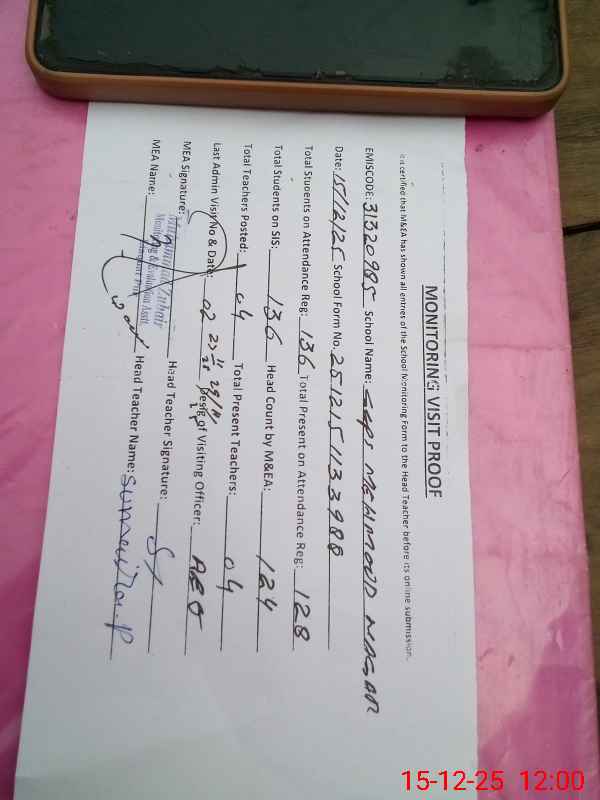 MONITORING VISIT PROOF
It is certified that M&EA has shown all entries of the School Monitoring Form to the Head Teacher before its online submission.
EMISCODE: 31320985 School Name: GGPS MEHMOOD NAGAR
Date: 15/12/25 School Form No. 251215113398
Total Students on Attendance Reg: 136 Total Present on Attendance Reg: 128
Total Students on SIS: 136 Head Count by M&EA: 124
Total Teachers Posted: 04 Total Present Teachers: 04
Last Admin Visit No & Date: 02 Desig of Visiting Officer: AEO
MEA Signature: Head Teacher Signature:
Muhammad Zubair
Monitoring & Evaluation Asstt.
MEA Name: Head Teacher Name:
15-12-25 12:00